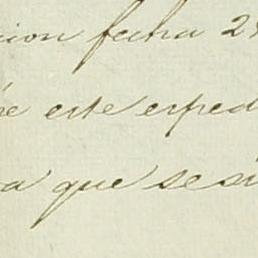 cion fecha 2
e este exped
a que se si